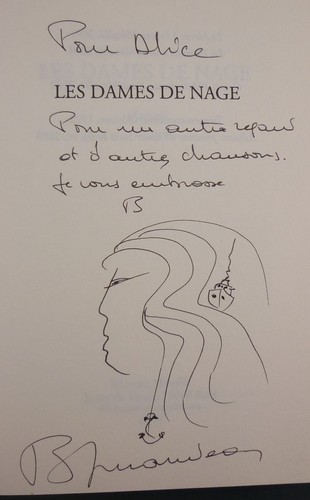 Pour Alice
LES DAMES DE NAGE
Pour un autre regard
et d'autres chansons.
Je vous embrasse
B